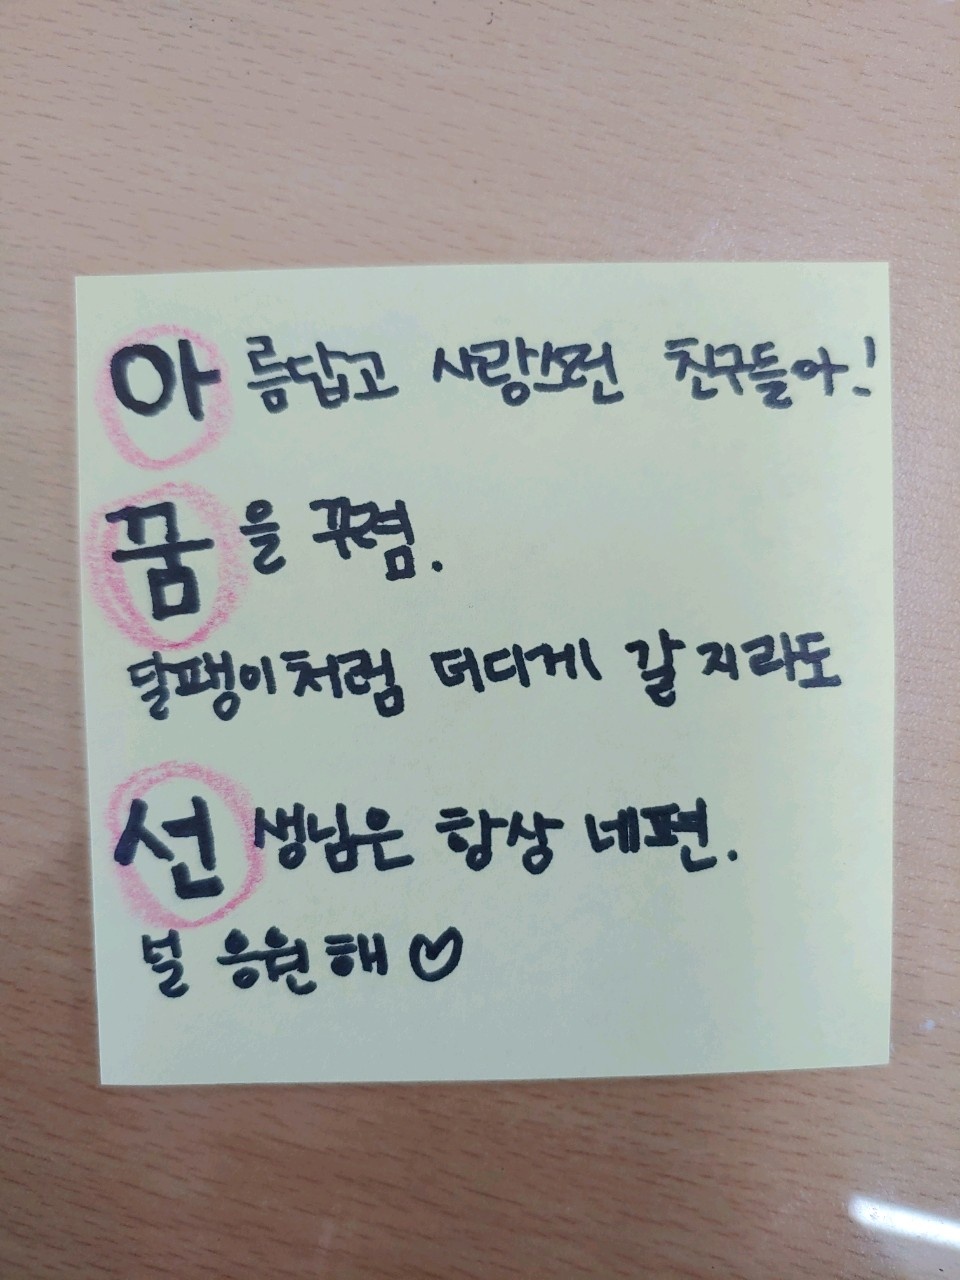 아름답고 사랑스런 친구들아!
꿈을 꾸렴.
달팽이처럼 더디게 갈지라도
선생님은 항상 네편.
널 응원해♡